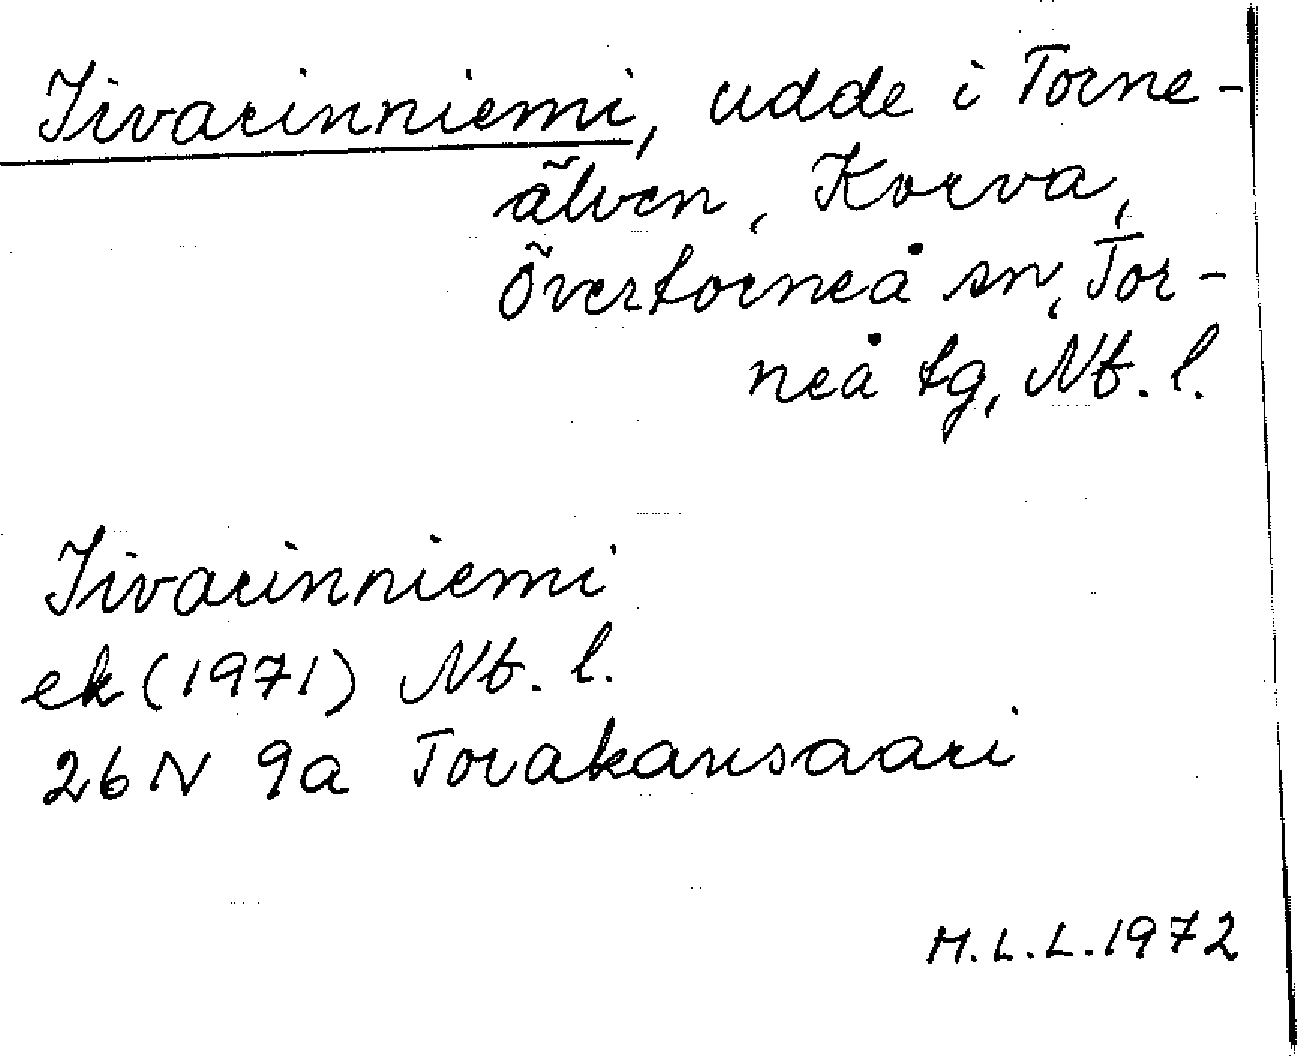 Iivarinniemi, udde i Torne-
älven, Korva,
Övertorneå sn, Tor-
neå tg, Nb. l.
Iivarinniemi
ek (1971) Nb. l.
26 N 9a Torakansaari
M.L.L. 1972